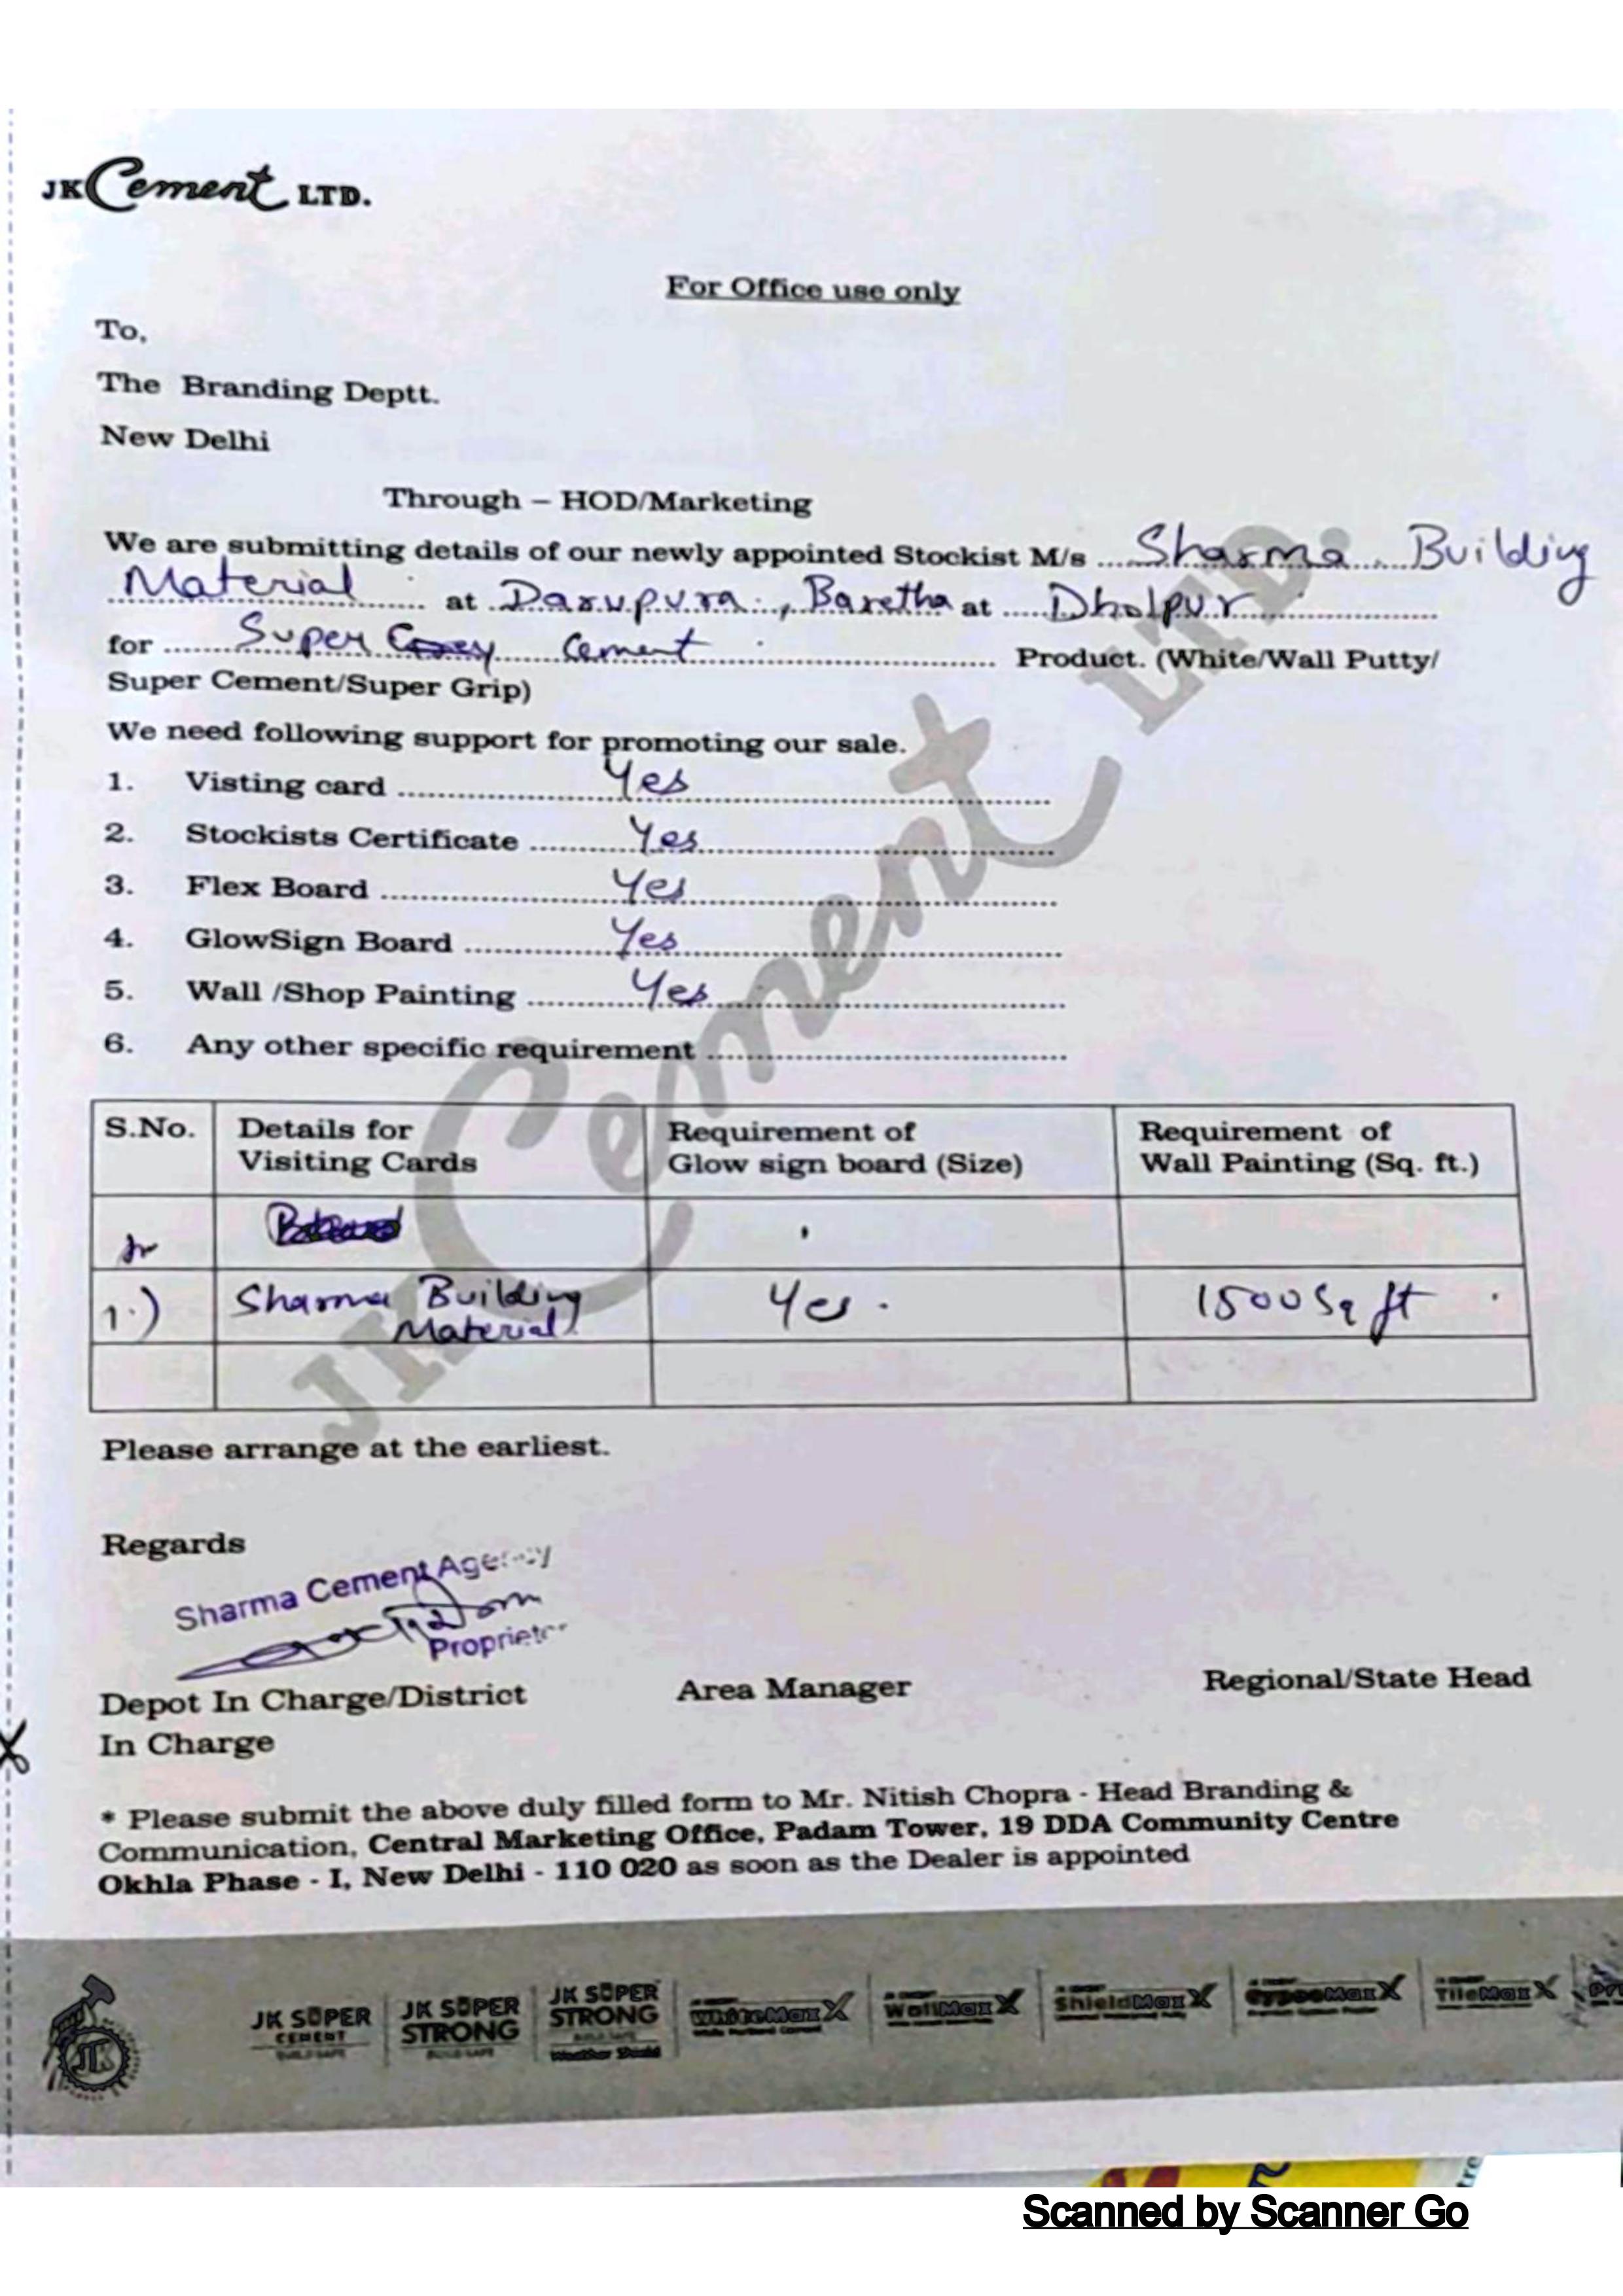 JK Cement LTD.
For Office use only
To,
The Branding Deptt.
New Delhi
Through – HOD/Marketing
We are submitting details of our newly appointed Stockist M/s Sharma Building
Material at Darupura, Baretha at Dholpur
for Super Grey Cement Product. (White/Wall Putty/
Super Cement/Super Grip)
We need following support for promoting our sale.
1. Visting card Yes
2. Stockists Certificate Yes
3. Flex Board Yes
4. GlowSign Board Yes
5. Wall /Shop Painting Yes
6. Any other specific requirement
S.No. Details for Visiting Cards Requirement of Glow sign board (Size) Requirement of Wall Painting (Sq. ft.)
1.) Sharma Building Material Yes. 1500 Sq ft
Please arrange at the earliest.
Regards
Sharma Cement Agency
Proprietor
Depot In Charge/District Area Manager Regional/State Head
In Charge
* Please submit the above duly filled form to Mr. Nitish Chopra - Head Branding &
Communication, Central Marketing Office, Padam Tower, 19 DDA Community Centre
Okhla Phase - I, New Delhi - 110 020 as soon as the Dealer is appointed
JK SUPER CEMENT BUILD SAFE JK SUPER STRONG BUILD SAFE JK SUPER STRONG BUILD SAFE Weather Shield WhiteMaxX WallMaxX ShieldMaxX GypsoMaxX TileMaxX
JK Cement LTD.
Scanned by Scanner Go